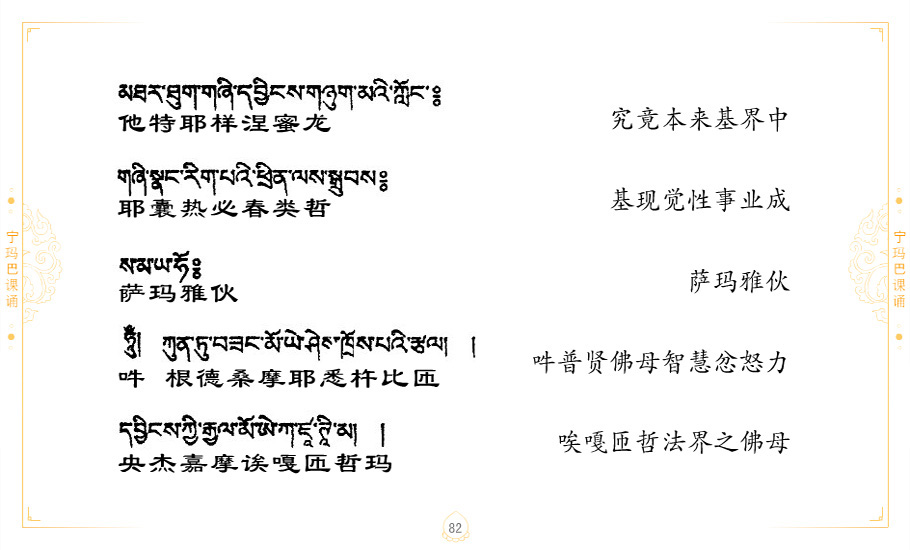 མཐར་ཐུག་གཞི་དབྱིངས་གཉུག་མའི་ཀློང་༔
他特耶样涅蜜龙
究竟本来基界中
གཞི་སྣང་རིག་པའི་ཕྲིན་ལས་སྒྲུབས༔
耶囊热必春类哲
基现觉性事业成
ས་མ་ཡ་ཧོ༔
萨玛雅伙
萨玛雅伙
ཧཱུྃ། ཀུན་ཏུ་བཟང་མོ་ཡེ་ཤེས་ཁྲོས་པའི་རྩལ། །
吽 根德桑摩耶悉杵比匝
吽普贤佛母智慧忿怒力
དབྱིངས་ཀྱི་རྒྱལ་མོ་ཨེ་ཀ་ཛཱ་ཊི་མ། །
央杰嘉摩诶嘎匝哲玛
唉嘎匝哲法界之佛母
宁玛巴课诵
宁玛巴课诵
82